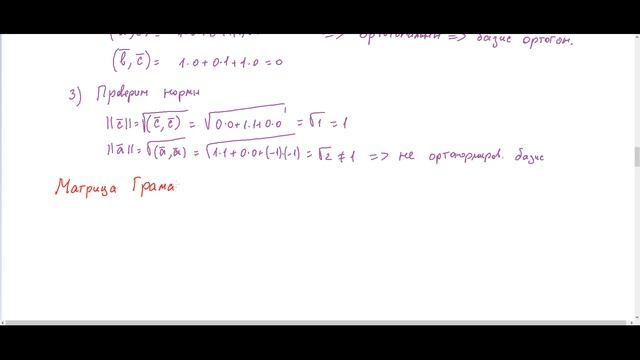 => ортогональн => базис ортогон.
(b̅, c̅) = 1·0+0·1+1·0=0
3) Проверим нормы
||c̅||=√(c̅, c̅) = √0·0+1·1+0·0 = √1 = 1
||a̅||=√(a̅, a̅) = √1·1+0·0+(-1)·(-1) = √2 ≠ 1 => не ортонормиров. базис
Матрица Грама